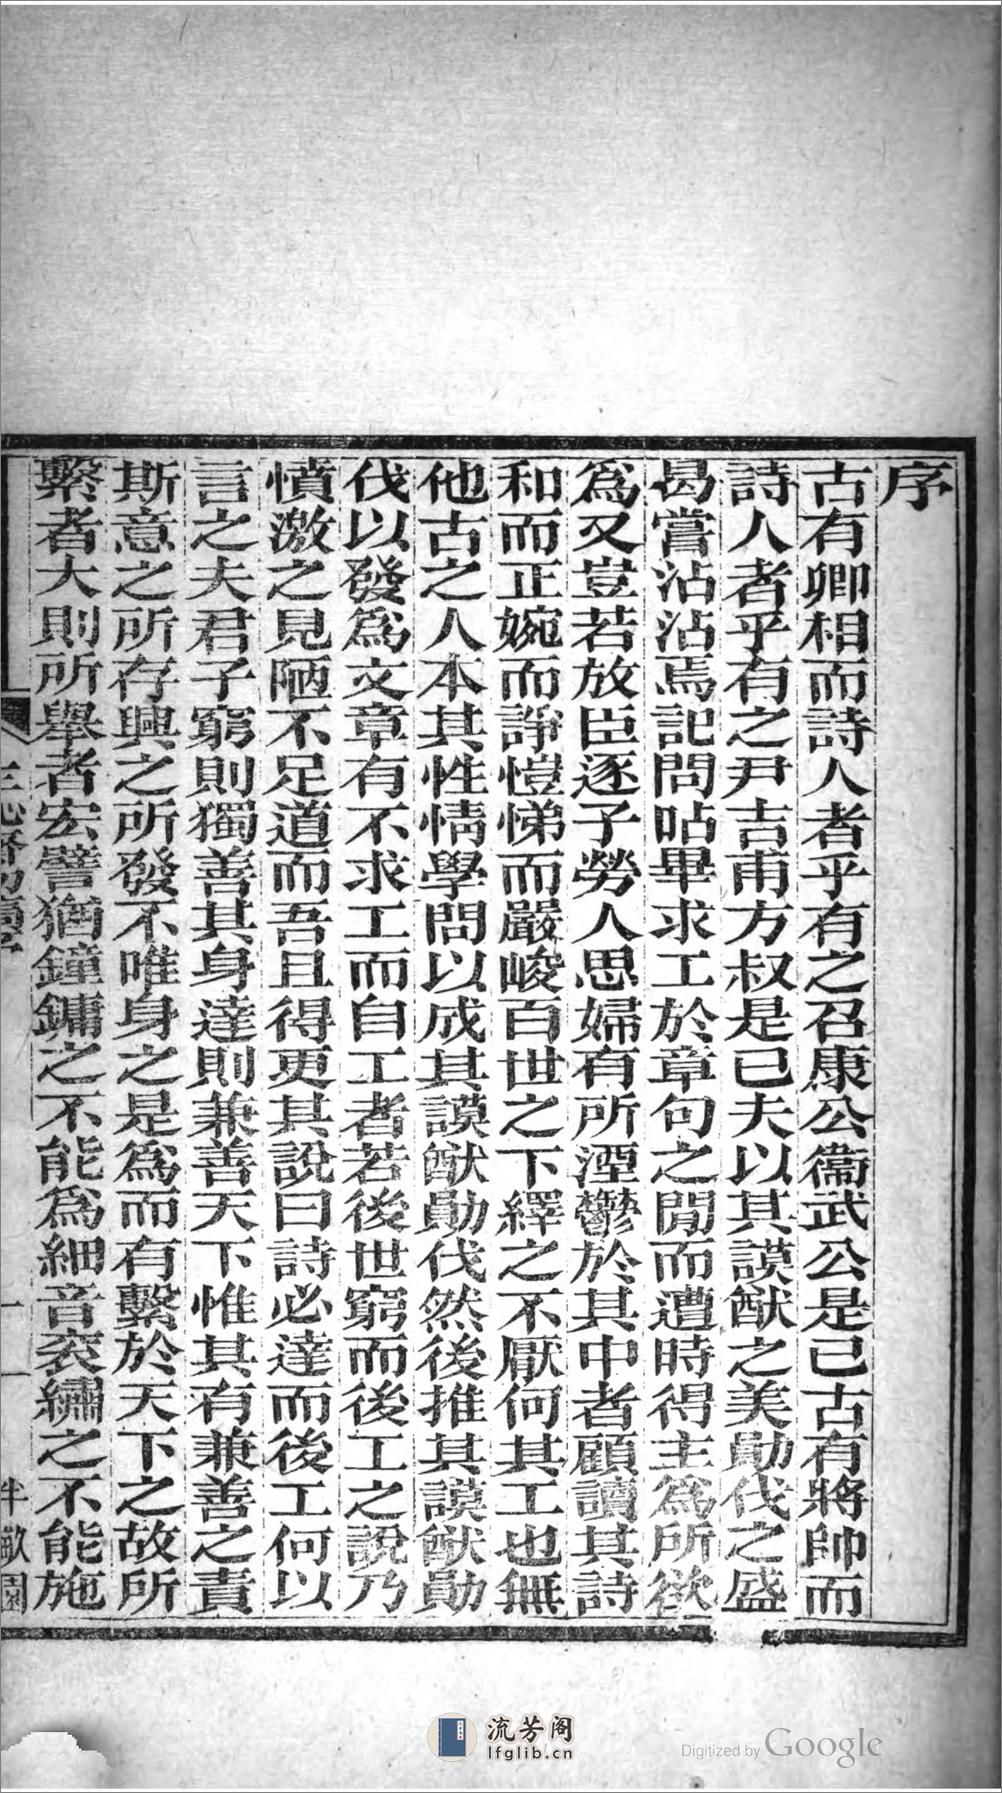 序
古有卿相而詩人者乎有之召康公衞武公是已古有將帥而
詩人者乎有之尹吉甫方叔是已夫以其謨猷之美勛伐之盛
曷嘗沾沾焉記問呫畢求工於章句之閒而遭時得主爲所欲
爲又豈若放臣逐子勞人思婦有所湮鬱於其中者顧讀其詩
和而正婉而諍愷悌而嚴峻百世之下繹之不厭何其工也無
他古之人本其性情學問以成其謨猷勛伐然後推其謨猷勛
伐以發爲文章有不求工而自工者若後世窮而後工之說乃
憤激之見陋不足道而吾且得更其說曰詩必達而後工何以
言之夫君子窮則獨善其身達則兼善天下惟其有兼善之責
斯意之所存興之所發不唯身之是爲而有繫於天下之故所
繫者大則所舉者宏譬猶鐘鏞之不能爲細音衮繡之不能施
一
半畝園
流芳阁
lfglib.cn
Digitized by Google